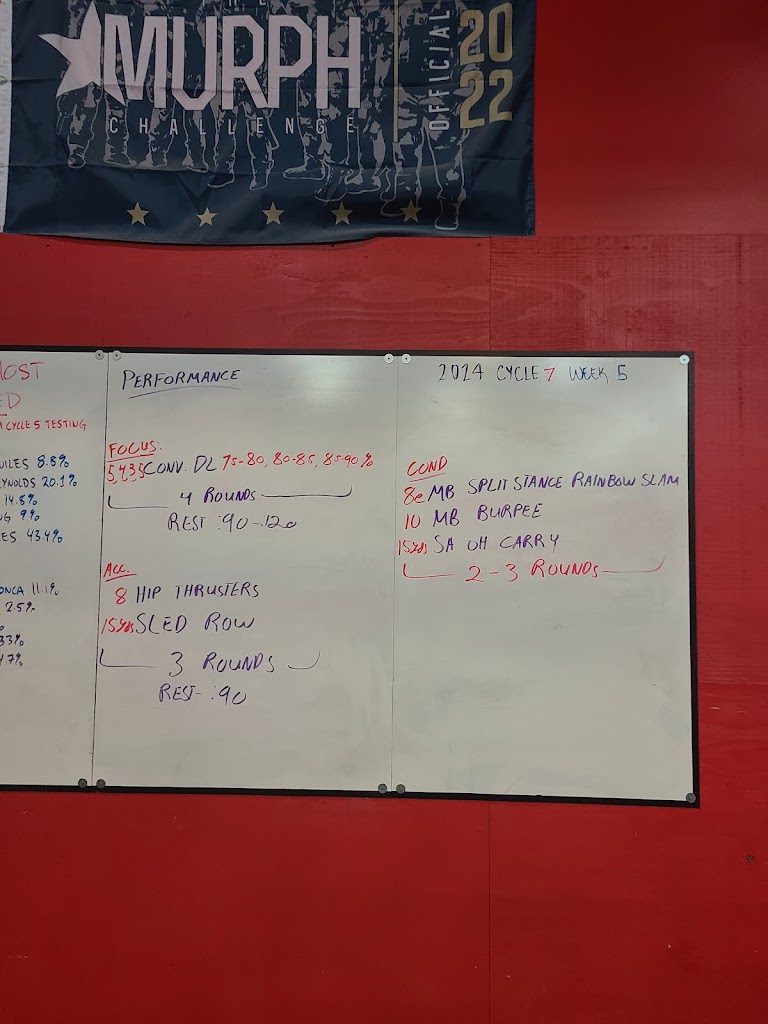 MURPH
CHALLENGE
OFFICIAL
2022
MOST
ED
CYCLE 5 TESTING
ILES 8.8%
YNOLDS 20.1%
14.8%
G 9%
ES 43.4%
ONCA 11.1%
2.5%
33%
47%
PERFORMANCE
FOCUS:
5,4,3,5 CONV. DL 75-80, 80-85, 85-90%
4 ROUNDS
REST :90-120
ACC.
8 HIP THRUSTERS
15yds SLED ROW
3 ROUNDS
REST- :90
2024 CYCLE 7 WEEK 5
COND
8e MB SPLIT STANCE RAINBOW SLAM
10 MB BURPEE
15yds SA OH CARRY
2-3 ROUNDS